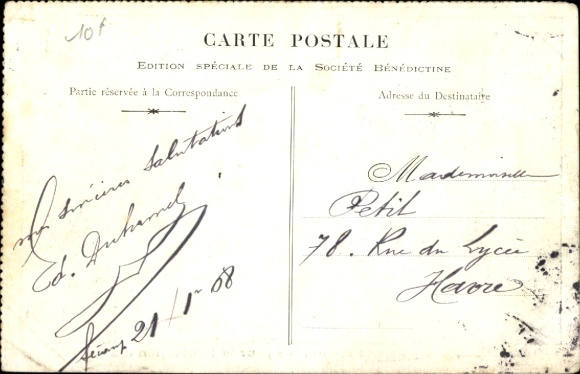 10f
CARTE POSTALE
EDITION SPÉCIALE DE LA SOCIÉTÉ BÉNÉDICTINE
Partie réservée à la Correspondance
Adresse du Destinataire
mes sincères salutations
Ed. Duhamel
Fécamp 21/1er 08
Mademoiselle
Petit
78. Rue du Lycée
Havre